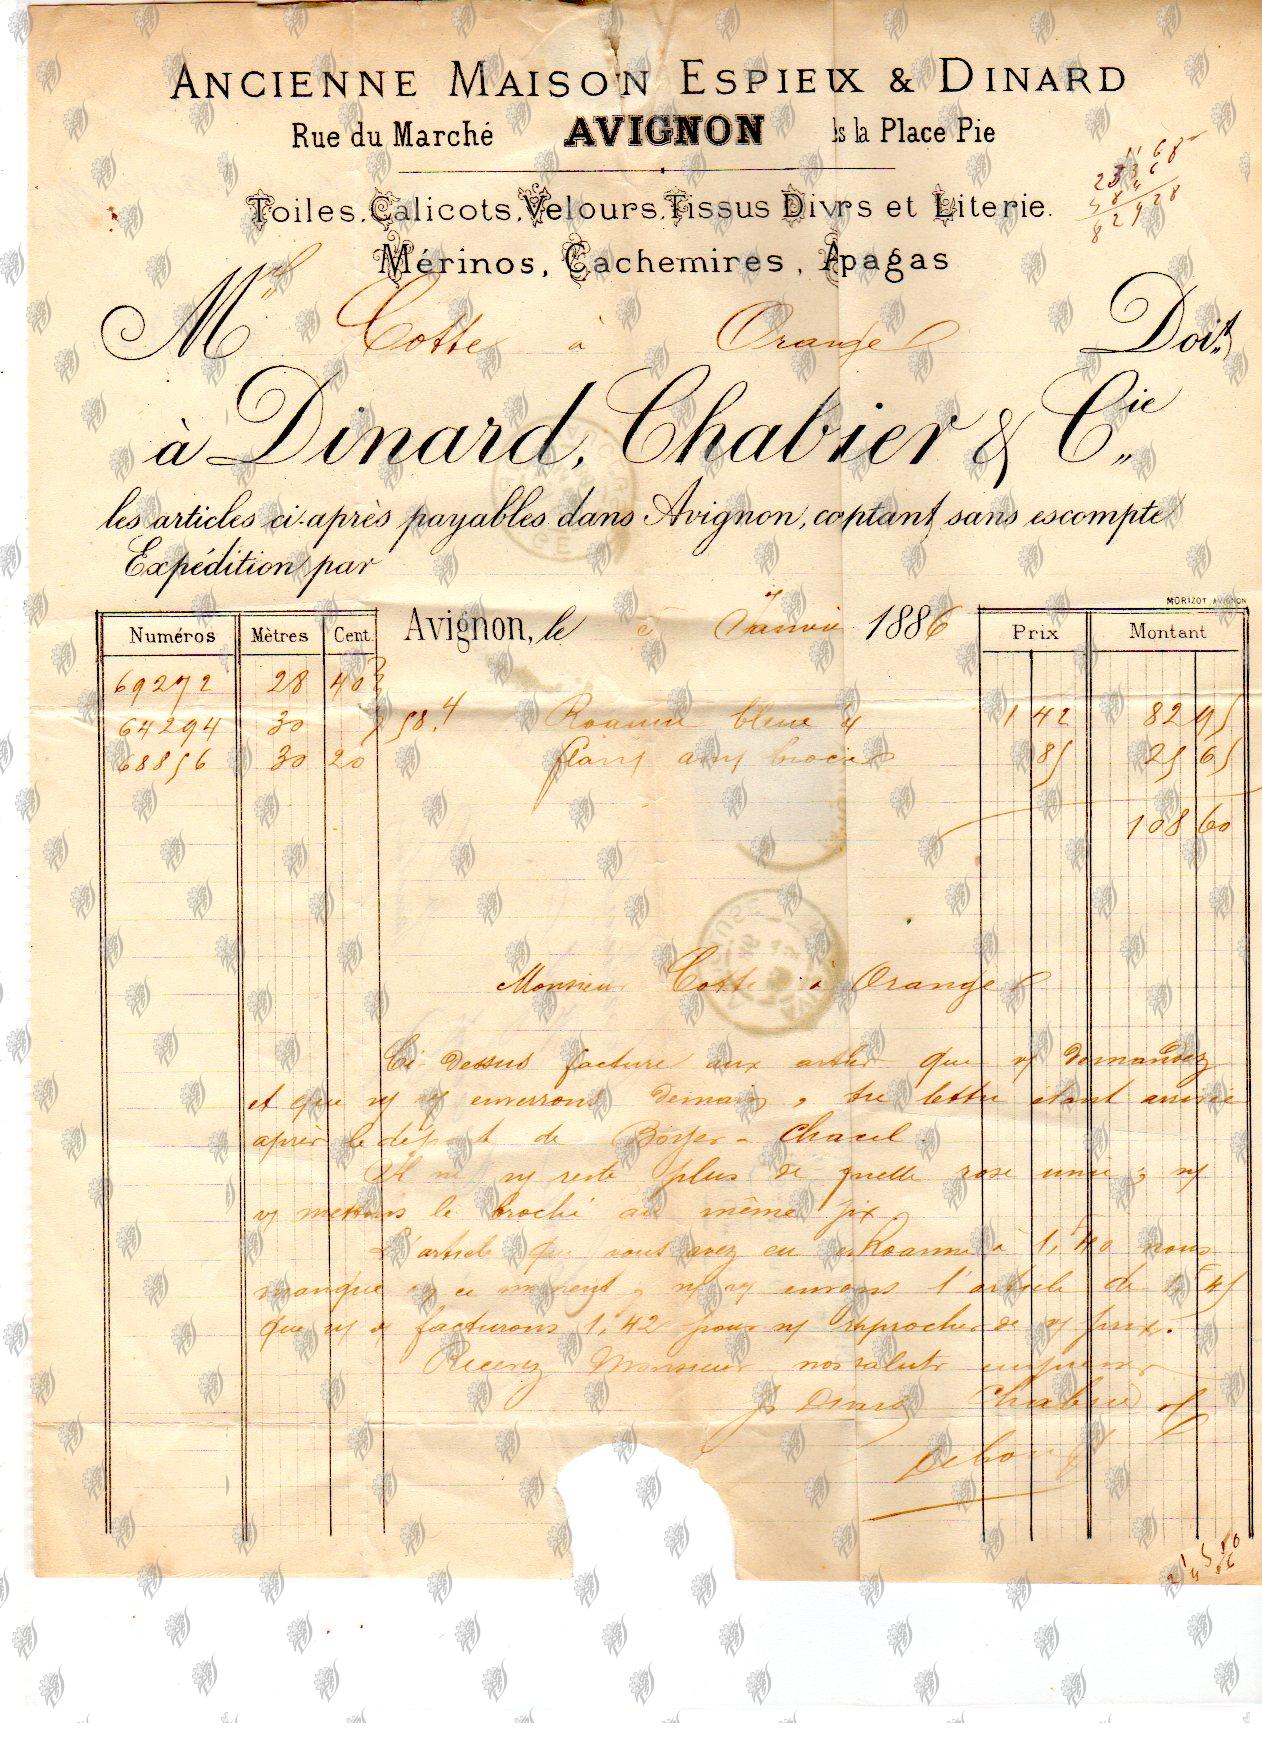 ANCIENNE MAISON ESPIEUX & DINARD
Rue du Marché AVIGNON la Place Pie
Toiles, Calicots, Velours, Tissus Divrs et Literie.
Mérinos, Cachemires, Apagas
Mr Cotte à Orange Doit
à Dinard, Chabrier & Cie
les articles ci-après payables dans Avignon, coptant sans escompte
Expédition par
MORIZOT AVIGNON
Numéros Mètres Cent. Avignon, le 7 Janvier 1886 Prix Montant
69272 28 40
64294 30 58.4 Roanne bleue 1 42 82 95
68856 30 20 85 25 65
108 60
Monsieur Cotte à Orange
Ci-dessus facture aux articles que demandez
et que enverrons demain, tre lettre étant arrivée
après le départ de Boyer-Chacel.
Il ne reste plus de rose unie;
mettons le broché au même prix
L'article que vous avez eu en Roanne à 1,40 nous
manque en ce moment, l'article de 1,45
que facturons 1,42 pour rapprocher de prix.
Recevez Monsieur nos saluts empressés
Dinard Chabrier